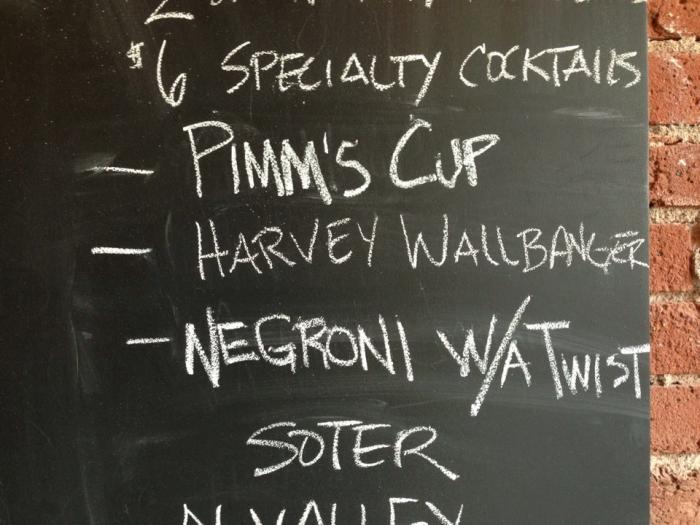 $6 SPECIALTY COCKTAILS
– PIMM'S CUP
– HARVEY WALLBANGER
– NEGRONI W/A TWIST
SOTER
VALLEY